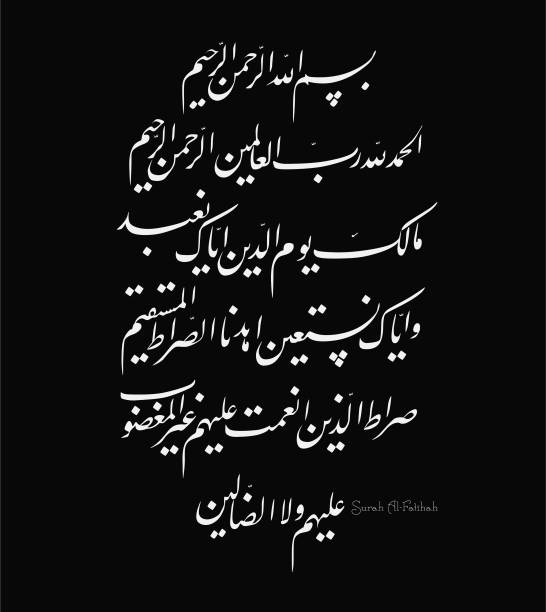 بسم الله الرّحمن الرّحیم
الحمد للّه ربّ العالمین الرّحمن الرّحیم
مالک یوم الدّین ایّاک نعبد
وایّاک نستعین اهدنا الصّراط المستقیم
صراط الّذین انعمت علیهم غیر المغضوب
علیهم ولا الضّالین
Surah Al-Fatihah